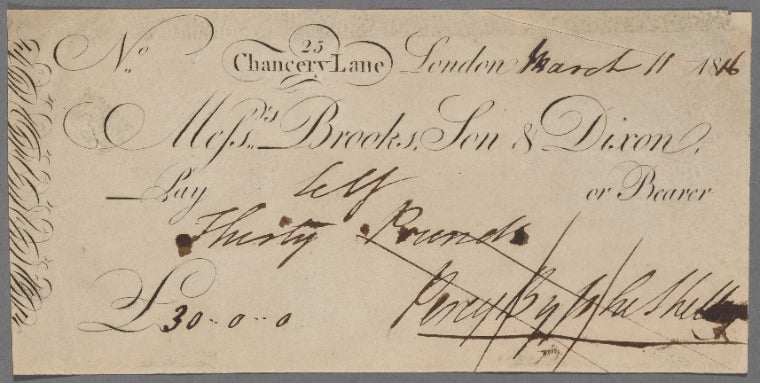 No. 25 Chancery-Lane London March 11 1816
Messrs. Brooks, Son & Dixon,
Pay Self or Bearer
Thirty Pounds
£30-0-0 Percy Bysshe Shelley